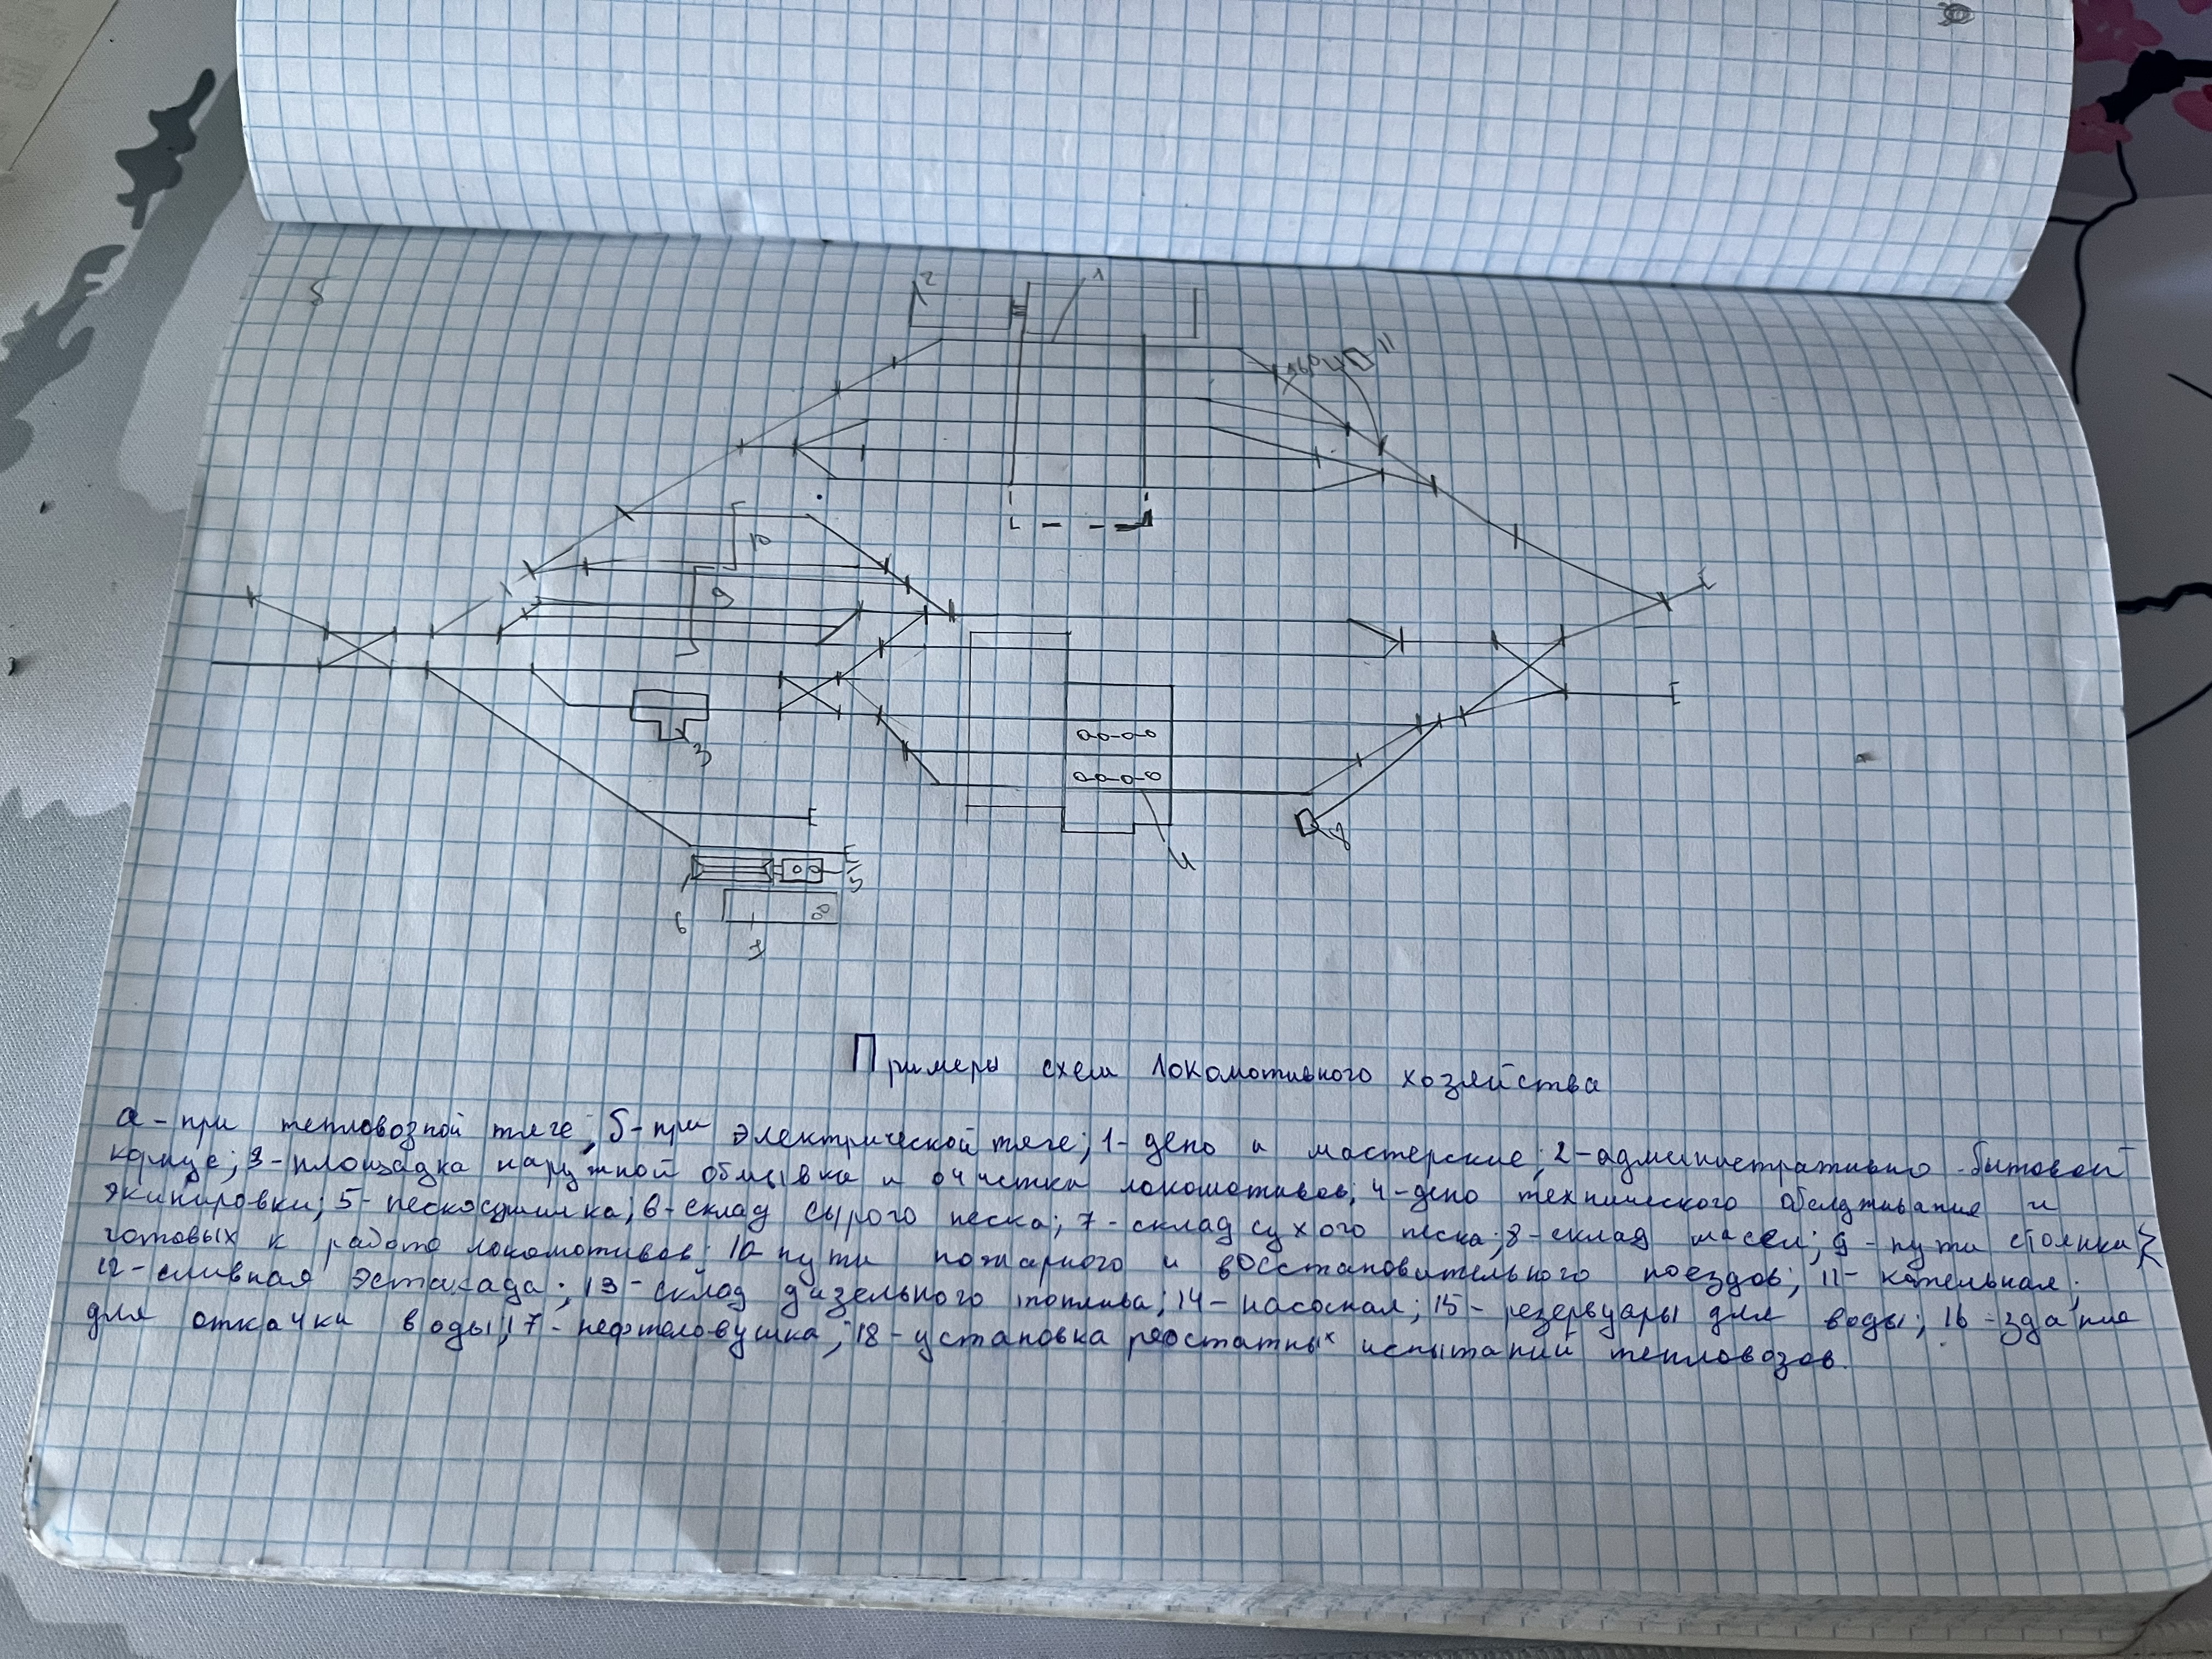 б
2
1
11
10
9
3
8
4
5
6
7
Примеры схем локомотивного хозяйства
а - при тепловозной тяге; б - при электрической тяге; 1 - депо и мастерские; 2 - административно-бытовой
корпус; 3 - площадка наружной обмывки и очистки локомотивов; 4 - депо технического обслуживание и
экипировки; 5 - пескосушилка; 6 - склад сырого песка; 7 - склад сухого песка; 8 - склад масел; 9 - пути стоянки
готовых к работе локомотивов; 10 - пути пожарного и восстановительного поездов; 11 - котельная;
12 - сливная эстакада; 13 - склад дизельного топлива; 14 - насосная; 15 - резервуары для воды; 16 - здание
для откачки воды; 17 - нефтеловушка; 18 - установка реостатных испытаний тепловозов.